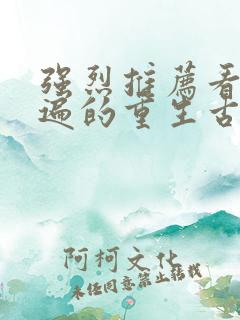 强烈推薦看
遍的重生古
阿柯文化
未经同意禁止转载